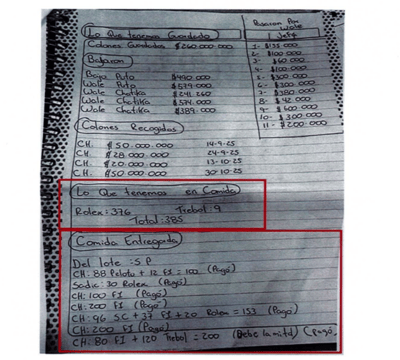 Lo Que tenemos Guardado
Colones Guardados $260.000.000
Bajaron
Bajo Puto $490.000
Wole Puto $579.000
Wole Chatika $241.260
Wole Chatika $574.000
Wole Chatika $389.000
Pasaron Por
Wole
Jefx
1- $155.000
2- $100.000
3- $60.000
4- $100.000
5- $300.000
6- $300.000
7- $380.000
8- $42.000
9- $600.000
10- $300.000
11- $200.000
Colones Recogidos
CH. $50.000.000 14-9-25
CH. $28.000.000 24-9-25
CH. $20.000.000 13-10-25
CH. $50.000.000 30-10-25
Lo Que tenemos en Comida
Rolex: 376 Trebol: 9
Total: 385
Comida Entregada
Del lote: SP
CH: 88 Pelota + 12 FI = 100 (Pagó)
Sadic: 30 Rolex (Pagó)
CH: 100 FI (Pagó)
CH: 200 FI (Pagó)
CH: 96 SC + 37 FI + 20 Rolex = 153 (Pagó)
CH: 200 FI (Pagó)
CH: 80 FI + 120 Trebol = 200 (Debe la mitad) (Pagó)